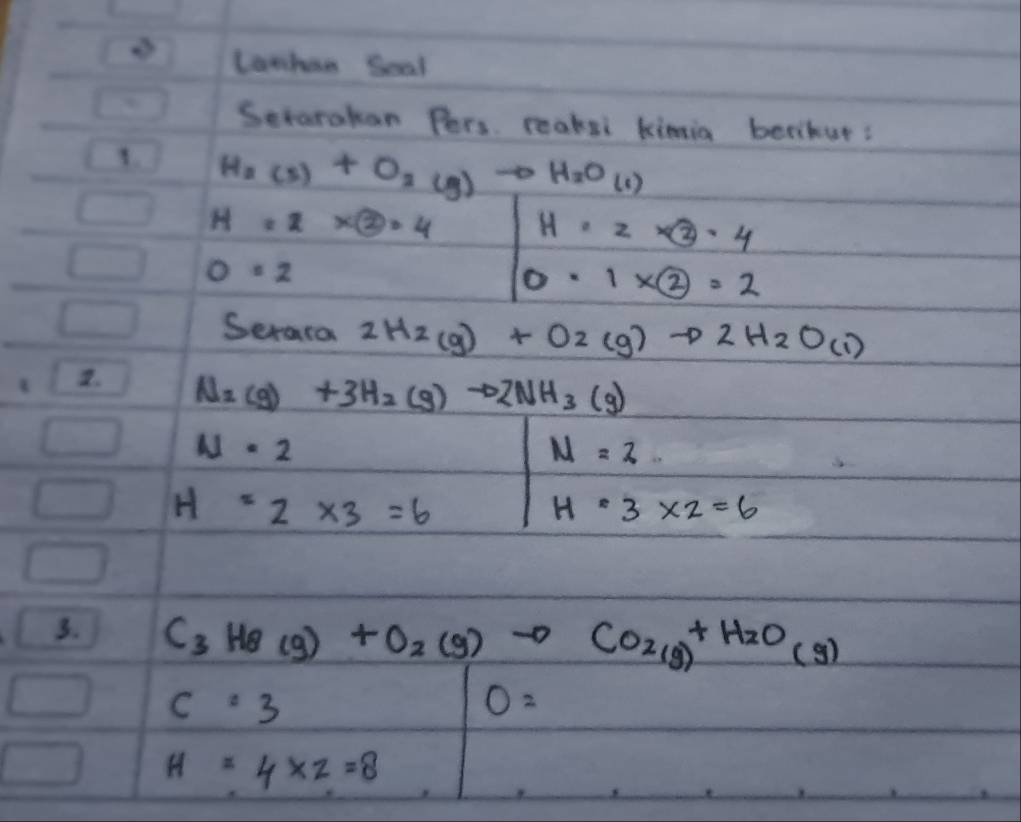 Latihan Soal
Setarakan Pers. reaksi kimia berikut:
1. H₂ (s) + O₂ (g) → H₂O (l)
H = 2 ×②= 4 | H = 2 ×② = 4
O = 2 | O = 1 ×② = 2
Setara 2H₂(g) + O₂ (g) → 2H₂O(l)
2. N₂ (g) +3H₂ (g) →2NH₃ (g)
N = 2 | N = 2
H = 2 ×3 =6 | H = 3 ×2=6
3. C₃ H8 (g) +O₂ (g) → CO₂(g) + H₂O (g)
C = 3 | O =
H = 4 ×2 =8